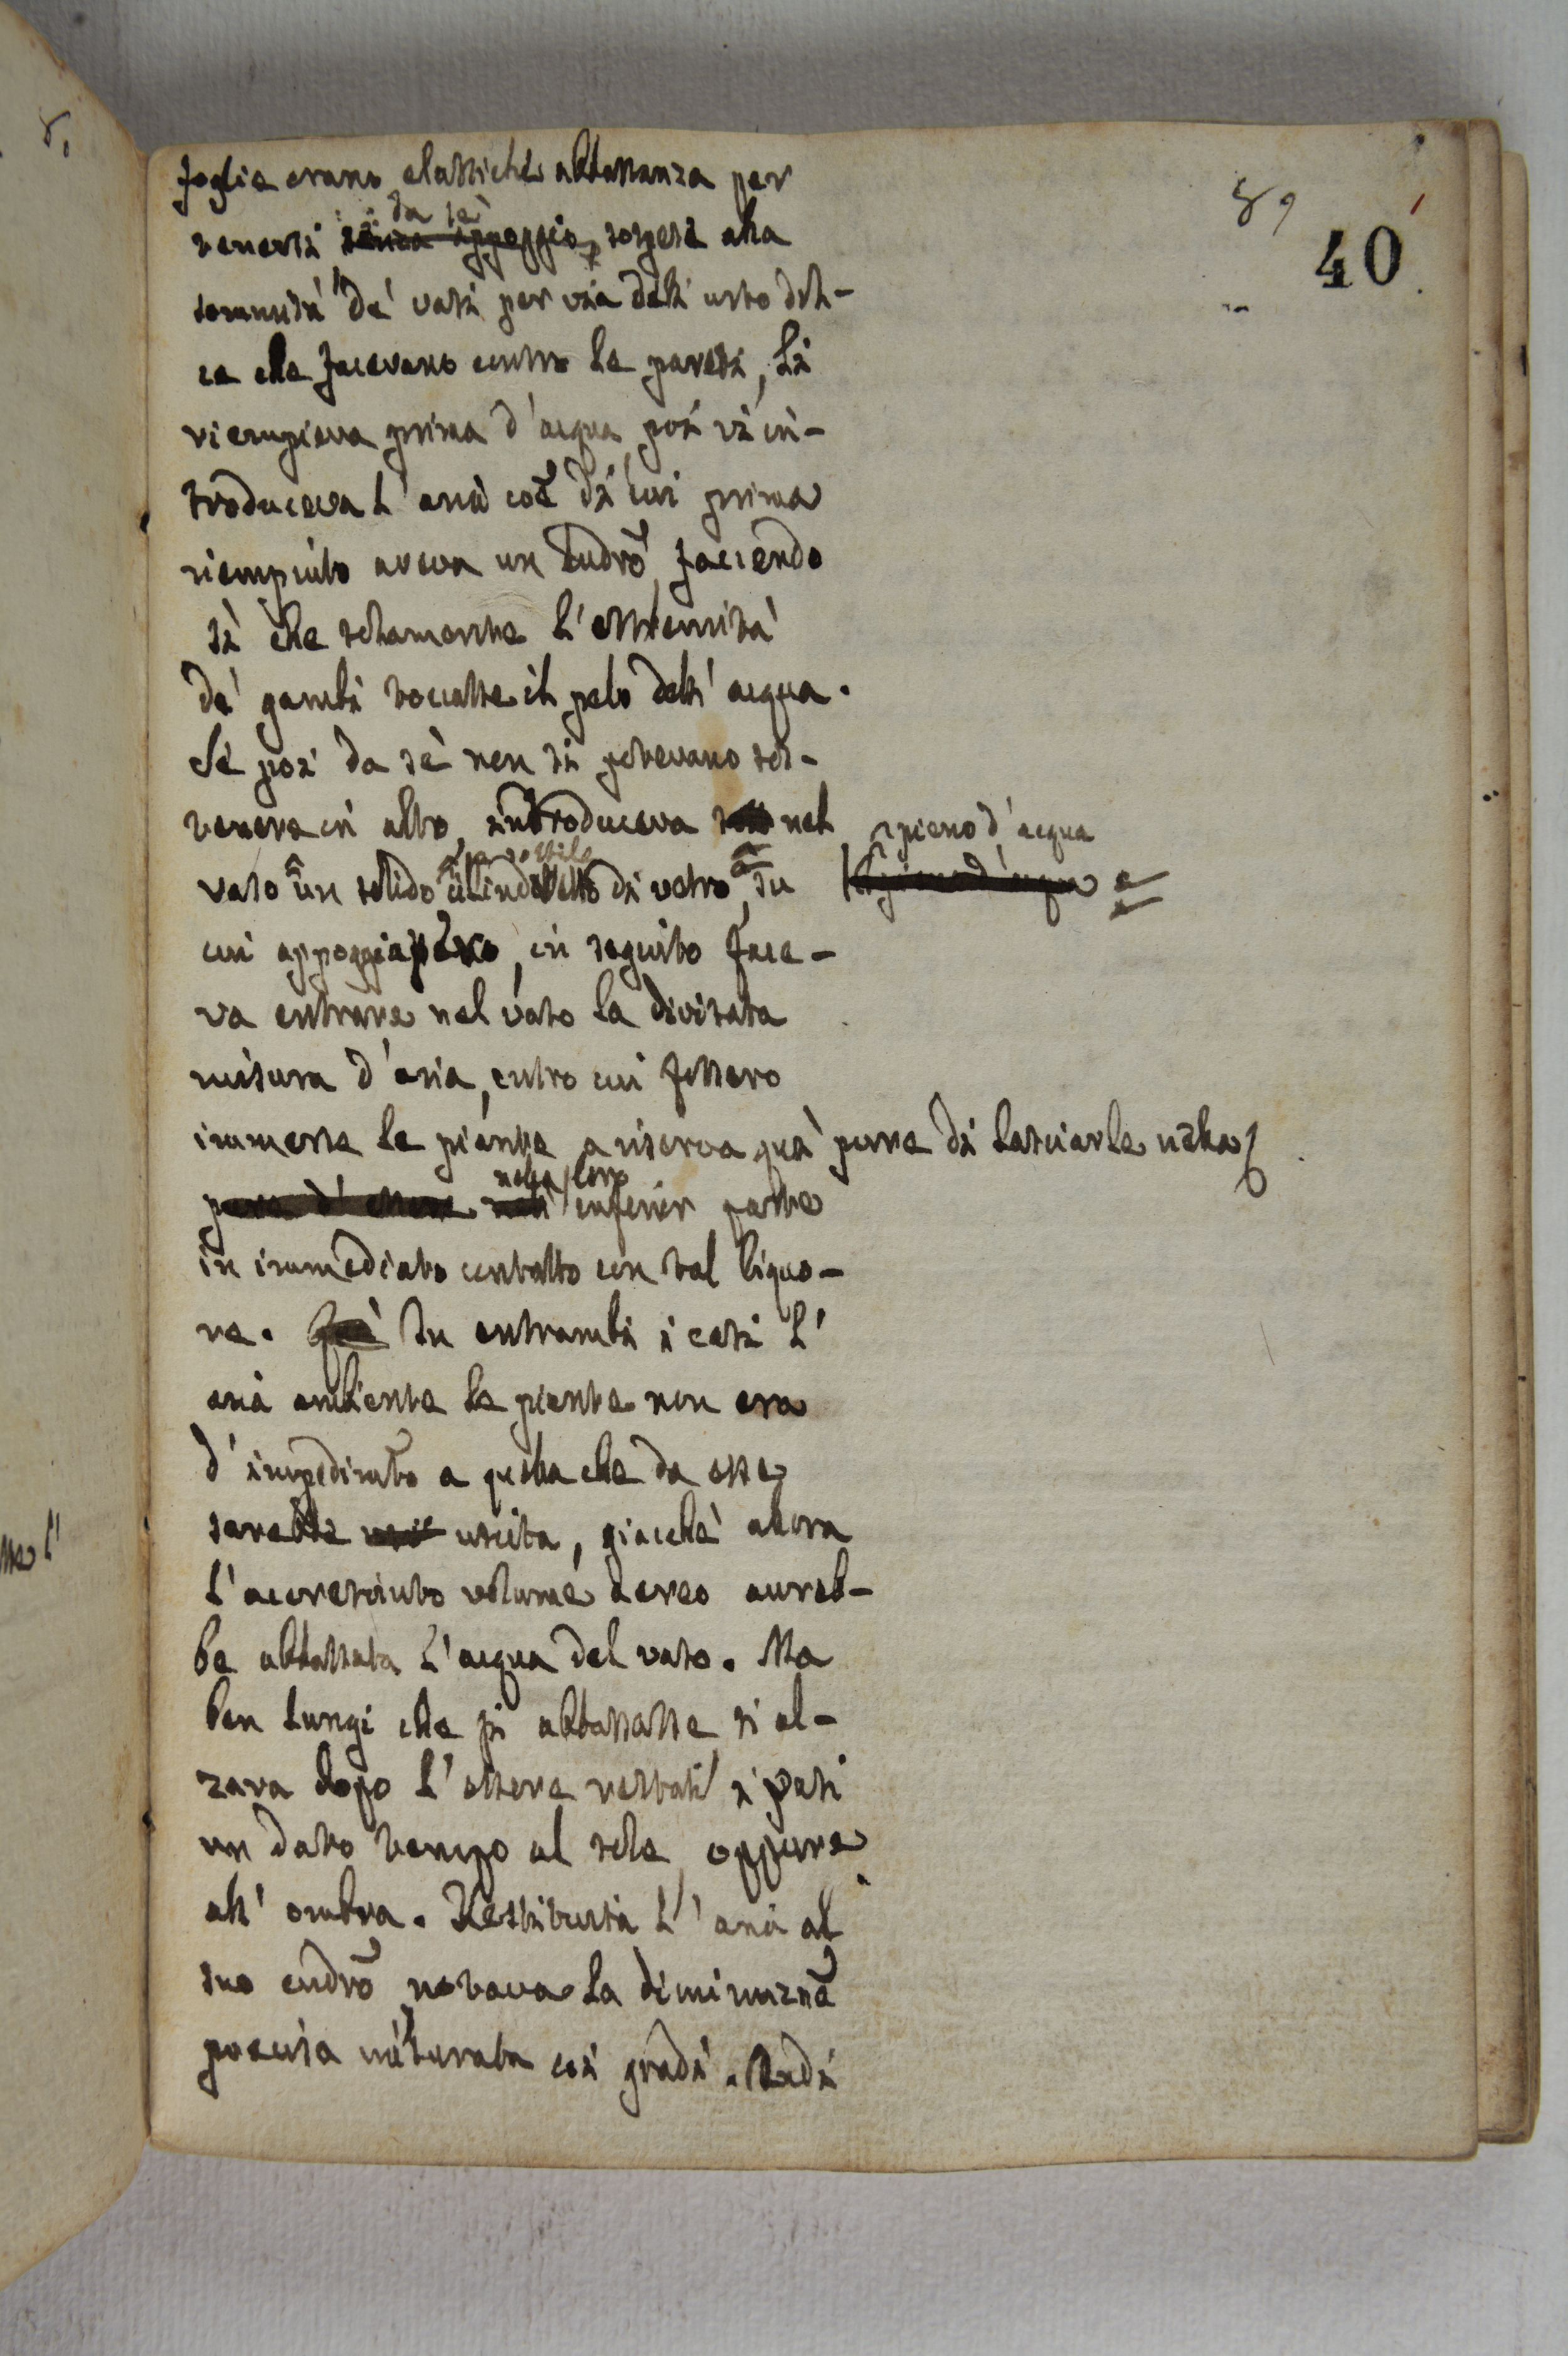 89
40
foglie erano elastiche abbastanza per
da se
tenersi senza appoggio, sospese alla
sommità de' vasi per via dell' urto dol-
ce che facevano contro le pareti, li
riempieva prima d'acqua, poi vi in-
troduceva l'aria coe di cui prima
riempiuto aveva un Eudro, facendo
sì che solamente l'estremità
de' gambi toccasse il pelo dell' acqua.
Se poi da sè non si potevano sos-
tenere in alto, introduceva nel
pieno d'acqua
vaso un solido cilindretto di vetro, su
pieno d'acqua
cui appoggiavano, in seguito face-
va entrare nel vaso la divisata
misura d'aria, entro cui fossero
immerse le piante, a riserva quì pure di lasciarle nella
nella loro
pure d' essere nell' inferior parte
in immediato contatto con tal liquo-
re. Quì In entrambi i casi l'
aria ambiente le piante non era
d'impedimto a quella che da esse
sarebbe uscita, giacchè allora
l'accresciuto volume aereo avreb-
be abbassata l'acqua del vaso. Ma
ben lungi che si abbassasse, si al-
zava dopo l'essere restati i vasi
un dato tempo al sole, oppure
all' ombra. Restituita l'aria al
suo eudro, notava la diminuzne
precisa misurata coi gradi. Indi